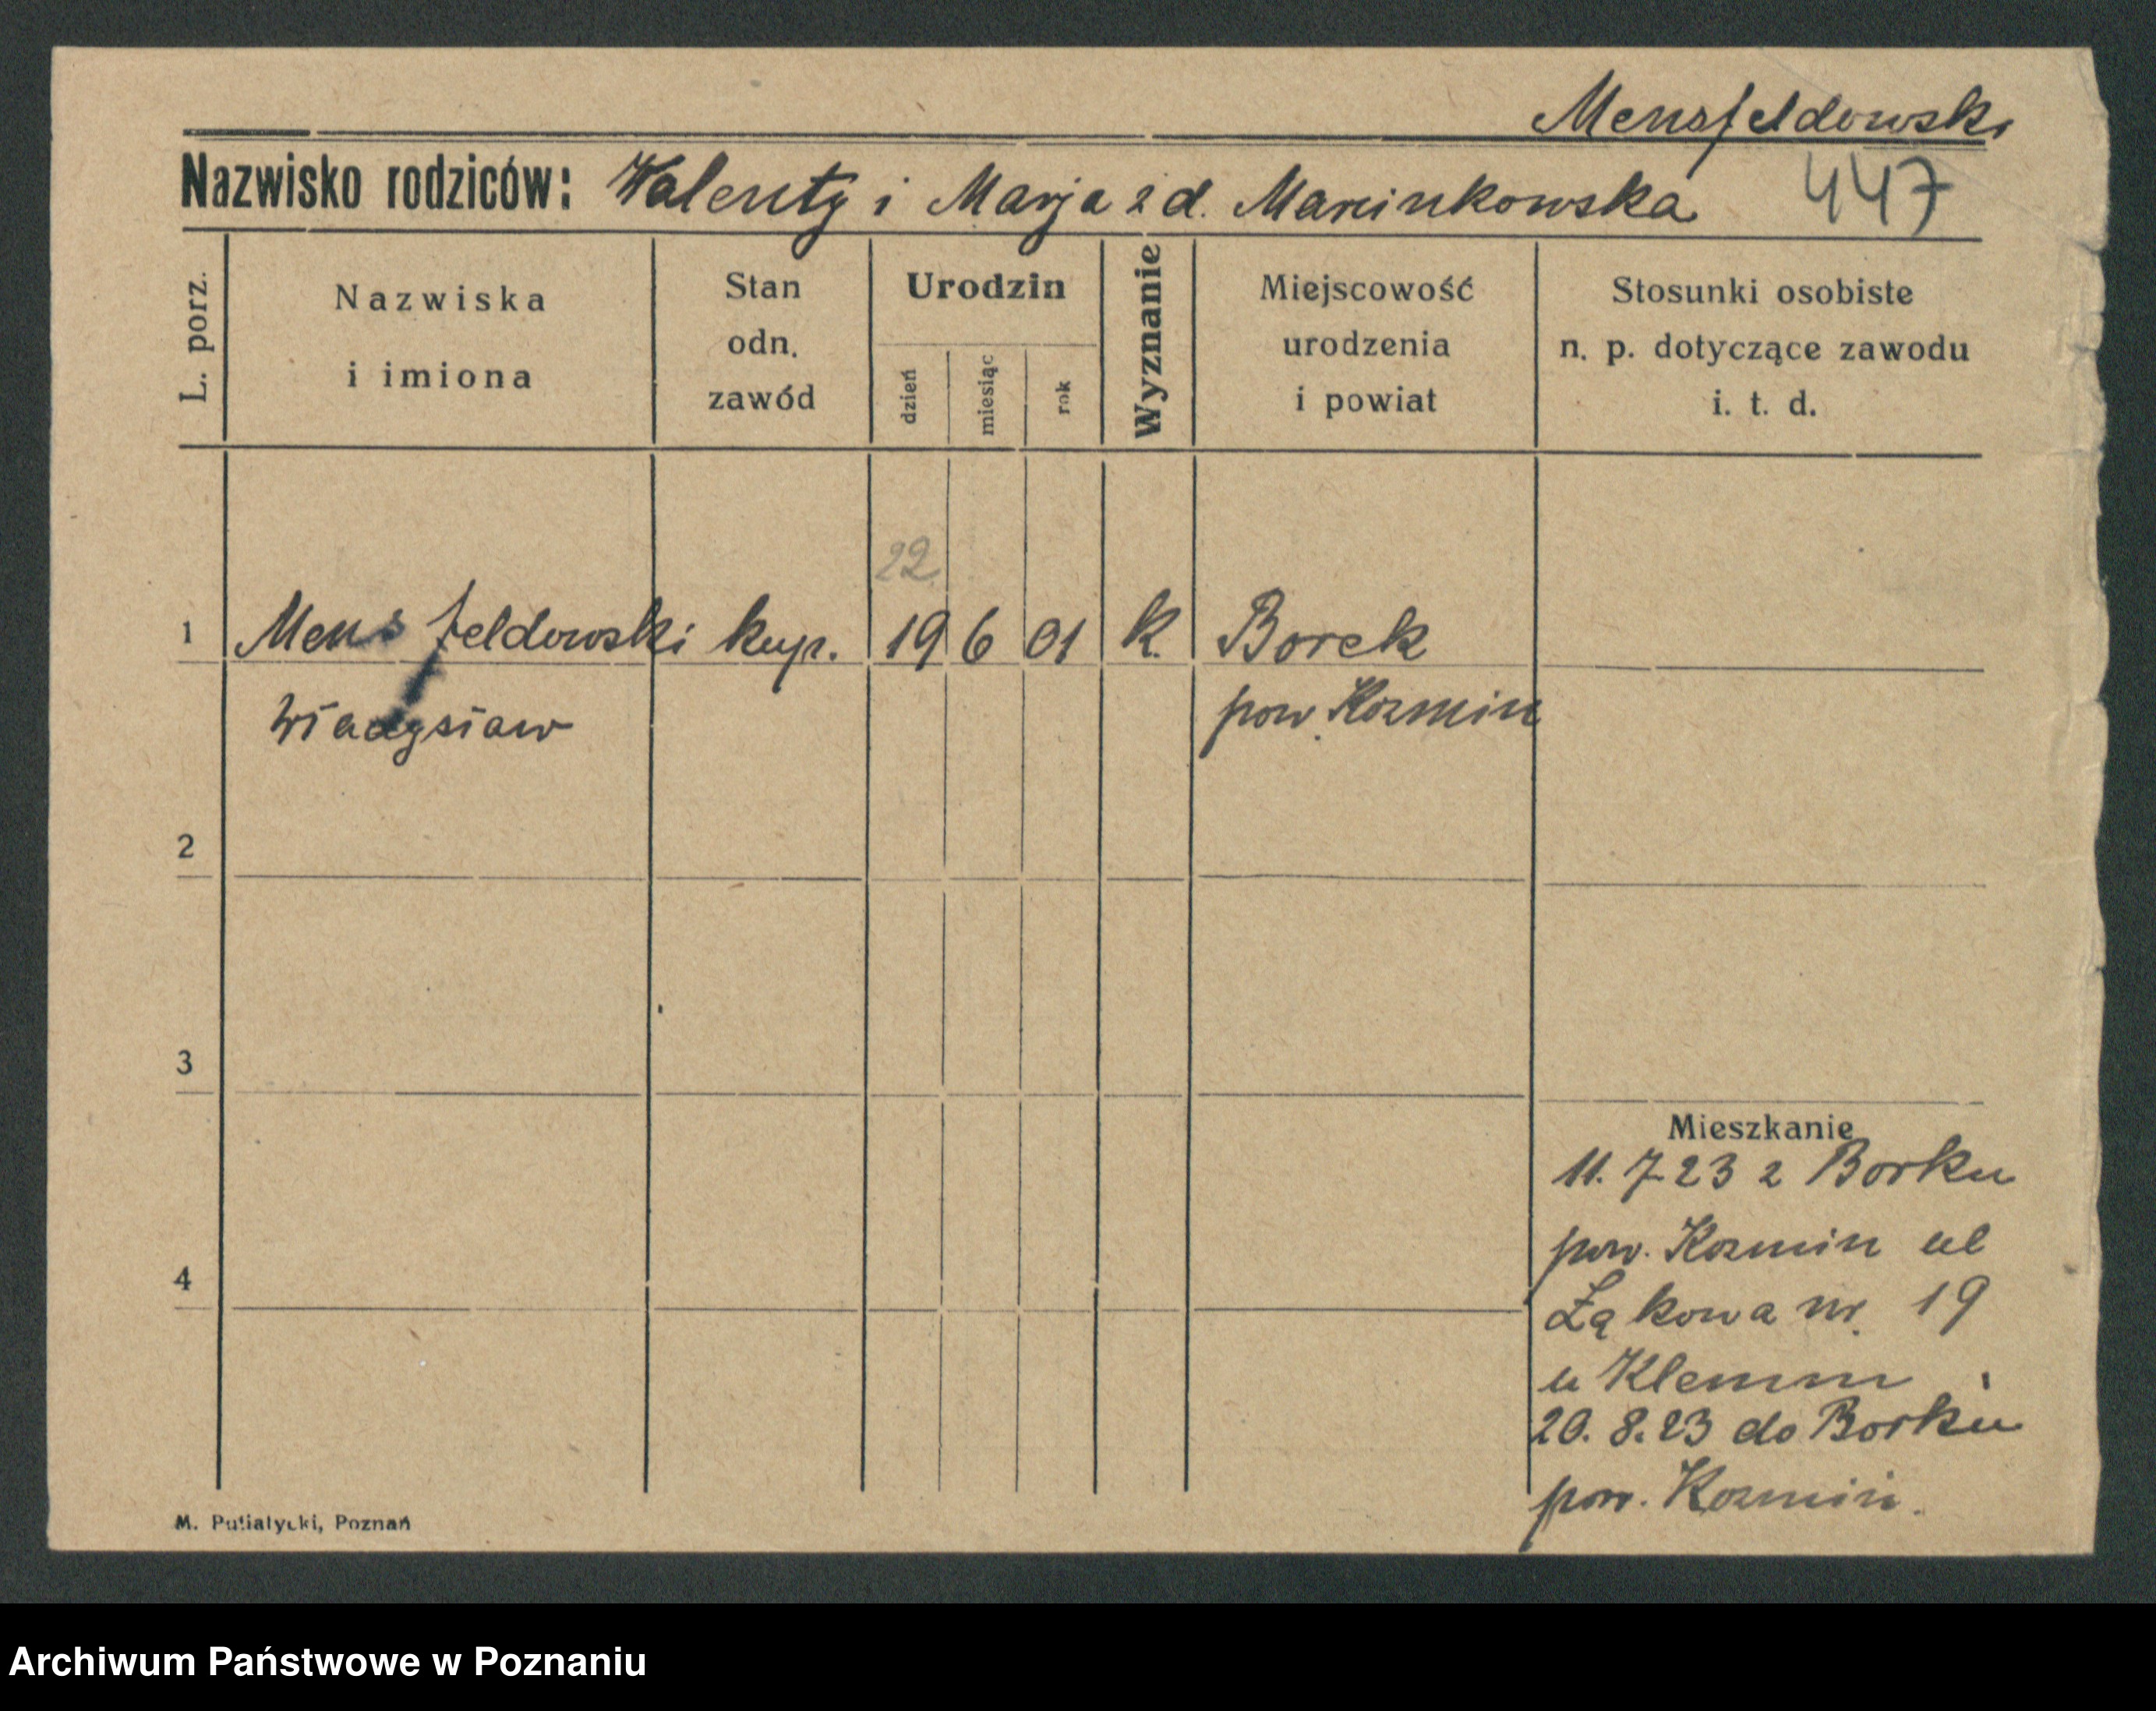 Mensfeldowski
Nazwisko rodziców: Walenty i Marja z d. Marcinkowska 447
L. porz.
Nazwiska
i imiona
Stan
odn.
zawód
Urodzin
dzień
miesiąc
rok
Wyznanie
Miejscowość
urodzenia
i powiat
Stosunki osobiste
n. p. dotyczące zawodu
i. t. d.
22
1 Mensfeldowski kup. 19 6 01 k. Borek
Władysław pow. Kozmin
2
3
4
Mieszkanie
11. 7 23 z Borku
pow. Kozmin ul
Łąkowa nr. 19
u Klemm
20. 8. 23 do Borku
pow. Kozmin.
M. Putiatycki, Poznań
Archiwum Państwowe w Poznaniu